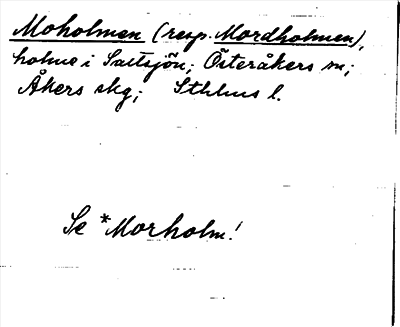 Moholmen (resp. Mordholmen),
holme i Saltsjön; Österåkers sn;
Åkers skg; Sthlms l.
Se *Morholm!